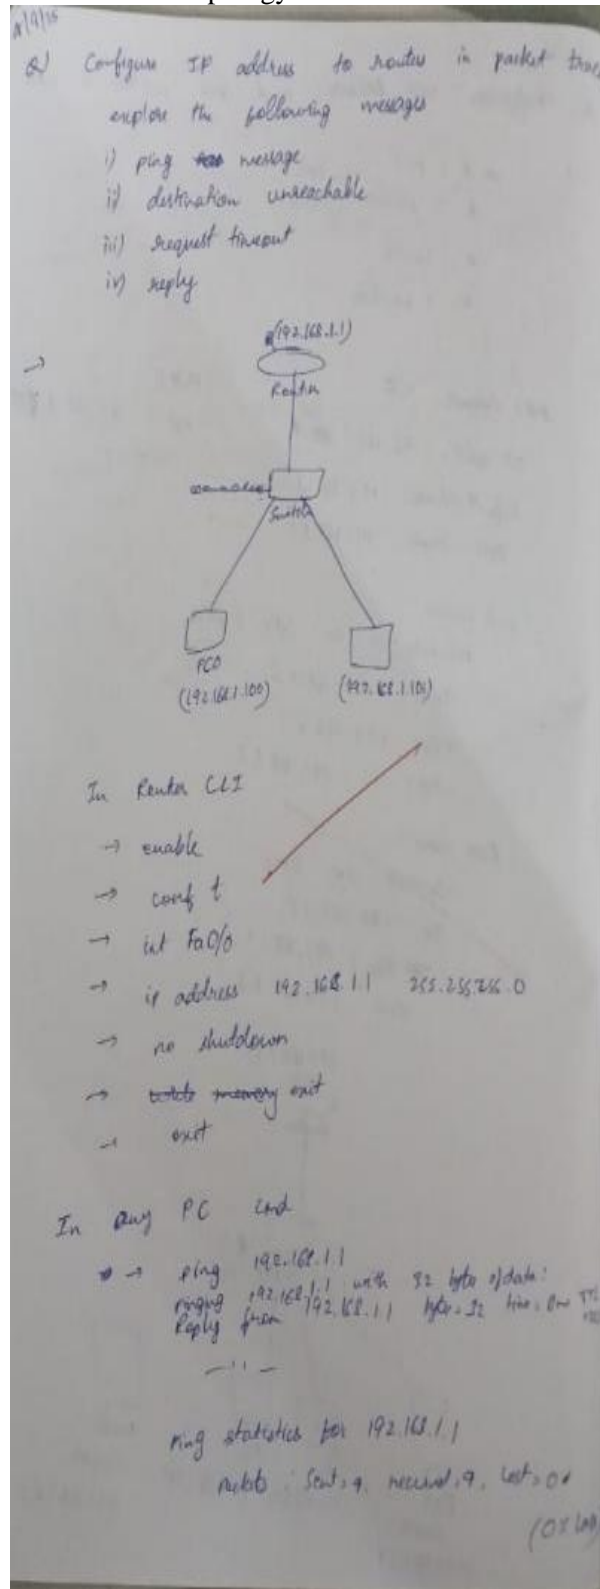 Q) Configure IP address to router in packet trac
explore the following messages
i) ping message
ii) destination unreachable
iii) request timeout
iv) reply
(192.168.1.1)
Router
Switch
PC0
(192.168.1.100)
(192.168.1.101)
In Router CLI
→ enable
→ conf t
→ int Fa0/0
→ ip address 192.168.1.1 255.255.255.0
→ no shutdown
→ exit
→ exit
In any PC cmd
→ ping 192.168.1.1
pinging 192.168.1.1 with 32 bytes of data:
Reply from 192.168.1.1 bytes=32 time=0ms TTL
—11—
Ping statistics for 192.168.1.1
Sent=4, received=4, lost=0